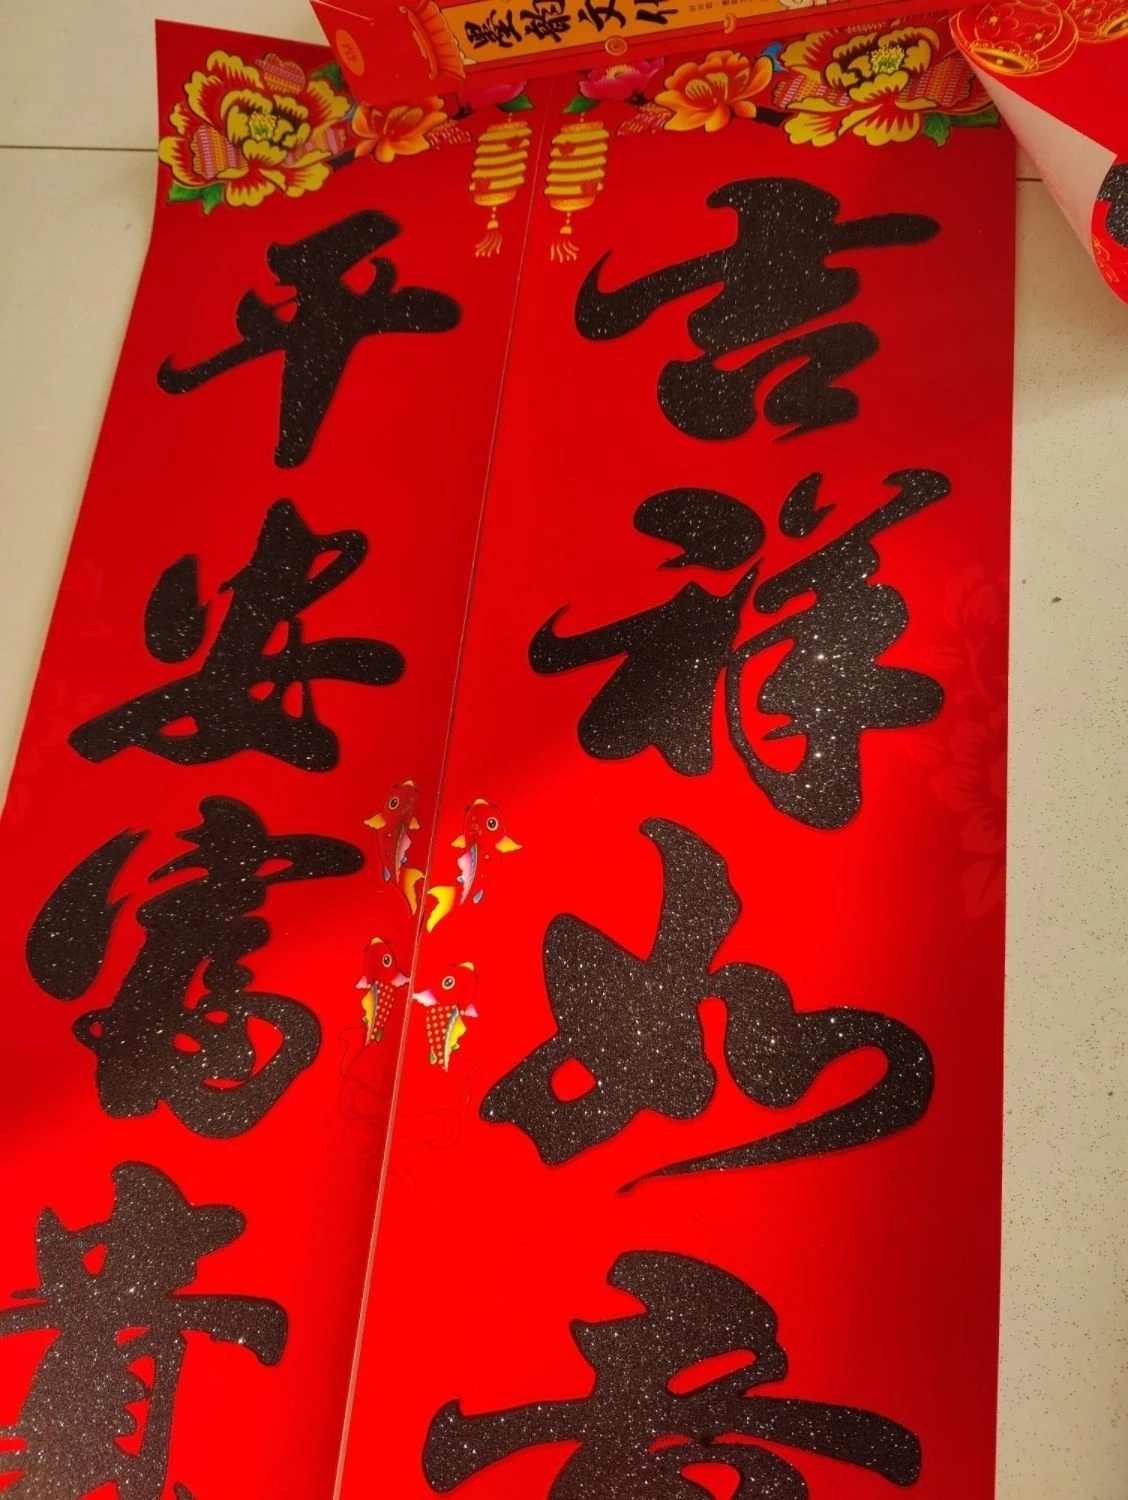 墨韵文化
吉祥如意
平安富贵